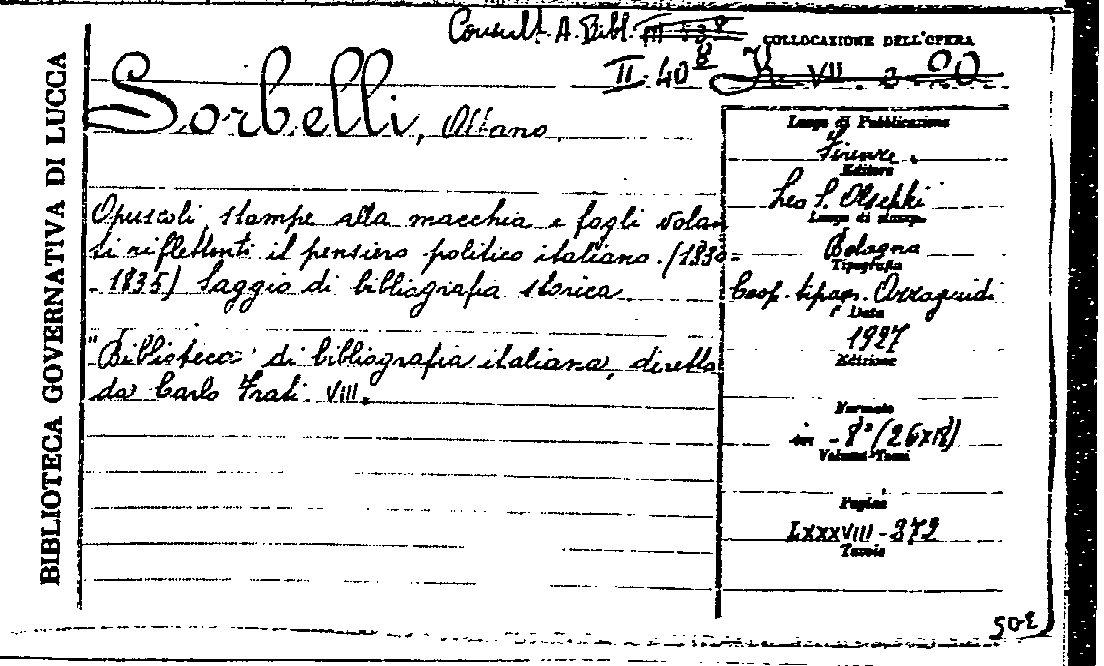 BIBLIOTECA GOVERNATIVA DI LUCCA
Consult. A. Bibl.
COLLOCAZIONE DELL'OPERA
II. 40
VII
Sorbelli, Albano
Opuscoli, stampe alla macchia e fogli volan
ti riflettenti il pensiero politico italiano. (1830-
- 1835) Saggio di bibliografia storica
"Biblioteca" di bibliografia italiana, diretta
da Carlo Frati. VIII.
Luogo di Pubblicazione
Firenze.
Editore
Leo S. Olschki
Luogo di stampa
Bologna
Tipografia
Coop. tipogr. Azzoguidi
Data
1927
Edizione
Formato
in - 8° (26x18)
Volumi-Tomi
Pagine
LXXXVIII - 372
Tavole